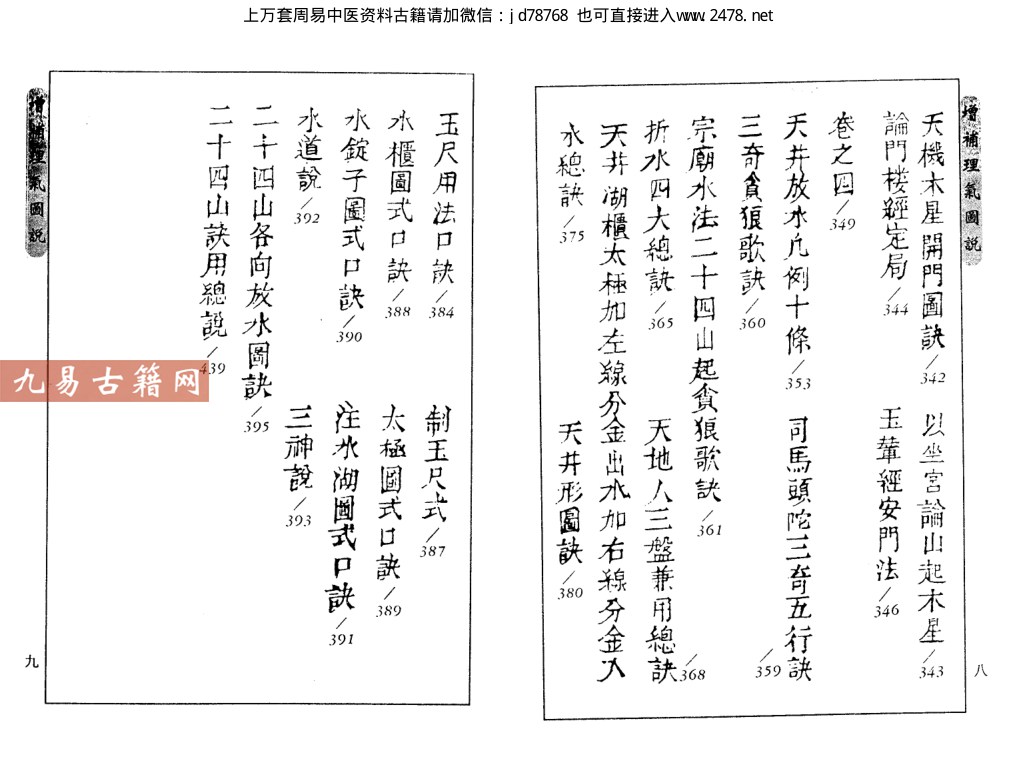 上万套周易中医资料古籍请加微信：jd78768 也可直接进入www.2478.net
增補理氣圖說
天機木星開門圖訣/342
以坐宮論山起木星/343
論門楼經定局/344
玉輦經安門法/346
卷之四/349
天井放水凡例十條/353
司馬頭陀三奇五行訣/359
三奇貪狼歌訣/360
宗廟水法二十四山起貪狼歌訣/361
折水四大總訣/365
天地人三盤兼用總訣/368
天井湖櫃太極加左線分金出水加右線分金入
水總訣/375
天井形圖訣/380
八
玉尺用法口訣/384
制玉尺式/387
水櫃圖式口訣/388
太極圖式口訣/389
水錠子圖式口訣/390
注水湖圖式口訣/391
水道說/392
三神說/393
二十四山各向放水圖訣/395
二十四山訣用總說/439
增補理氣圖說
九
九易古籍网